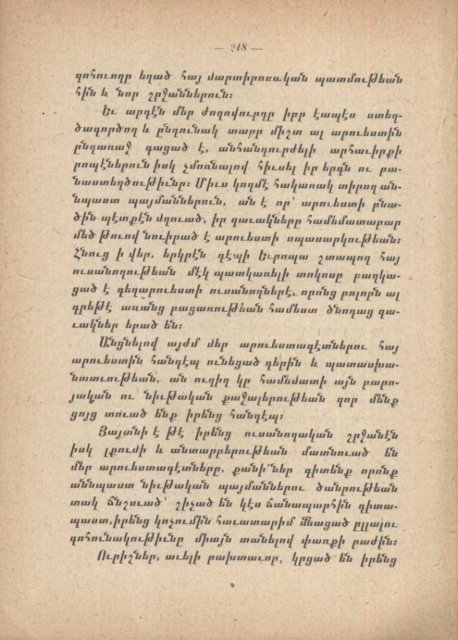 — 248 —
զոհուողը եղած հայ մարտիրոսական պատմութեան
հին և նոր շրջաններուն։
Եւ արդէն մեր ժողովուրդը իբր էապէս ստեղ-
ծագործող և ընդունակ տարր միշտ ալ արուեստին
ընդառաջ գացած է, անհանդուրժելի արհաւիրքի
րոպէներուն իսկ չմոռնալով հիւսել իր երգն ու բա-
նաստեղծութիւնը։ Միւս կողմէ հակառակ տիրող ան-
նպաստ պայմաններուն, ան է որ՝ արուեստի բնա-
ծին պէտքէն մղուած, իր զաւակները համեմատաբար
մեծ թուով նուիրած է արուեստի սպասարկութեան։
Հնուց ի վեր, երկրէն դէպի Եւրոպա շտապող հայ
ուսանողութեան մէկ պատկառելի տոկոսը բաղկա-
ցած է գեղարուեստի ուսանողներէ, որոնց բոլորն ալ
գրեթէ առանց բացառութեան համեստ ծնողաց զա-
ւակներ եղած են։
Անցնելով այժմ մեր արուեստագէտներու հայ
արուեստին հանդէպ ունեցած դերին և պատասխա-
նատւութեան, ան ուղիղ կը համեմատի այն բարո-
յական ու նիւթական քաջալերութեան զոր մենք
ցոյց տուած ենք իրենց հանդէպ։
Յայտնի է թէ իրենց ուսանողական շրջանէն
իսկ լքումի և անտարբերութեան մատնուած են
մեր արուեստագէտները, քանի՜ներ գիտենք որոնք
աննպաստ նիւթական պայմաններու ծանրութեան
տակ ճնշուած՝ շիջած են կէս ճանապարհին գիտա-
պաստ, իրենց կոչումին հաւատարիմ մնացած ըլլալու
գոհունակութիւնը միայն տանելով փառքի բաժին։
Ուրիշներ, աւելի բախտաւոր, կրցած են իրենց